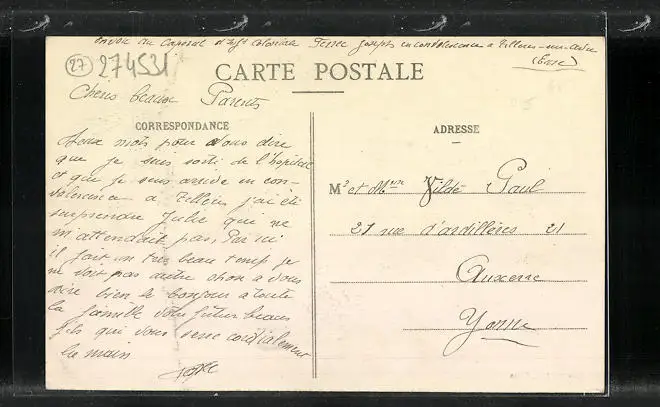 envoi du Caporal d'Inft coloniale Terre Joseph en convalescence a Tillières-sur-Avre
(Eure)
27 274531
CARTE POSTALE
Chers beaux Parents
CORRESPONDANCE
ADRESSE
Deux mots pour vous dire
que je suis sorti de l'hopital
et que je suis arrivé en con-
valescence a Tillières j'ai été
surprendre Julie qui ne
m'attendait pas, Par ici
il fait un tres beau temp je
ne voit pas autre chose a vous
dire bien le bonjour a toute
la famille votre futur beaux
fils qui vous serre cordialement
la main
Mr et Mme Vildé Paul
21 rue d'ardillères 21
Auxerre
Yonne